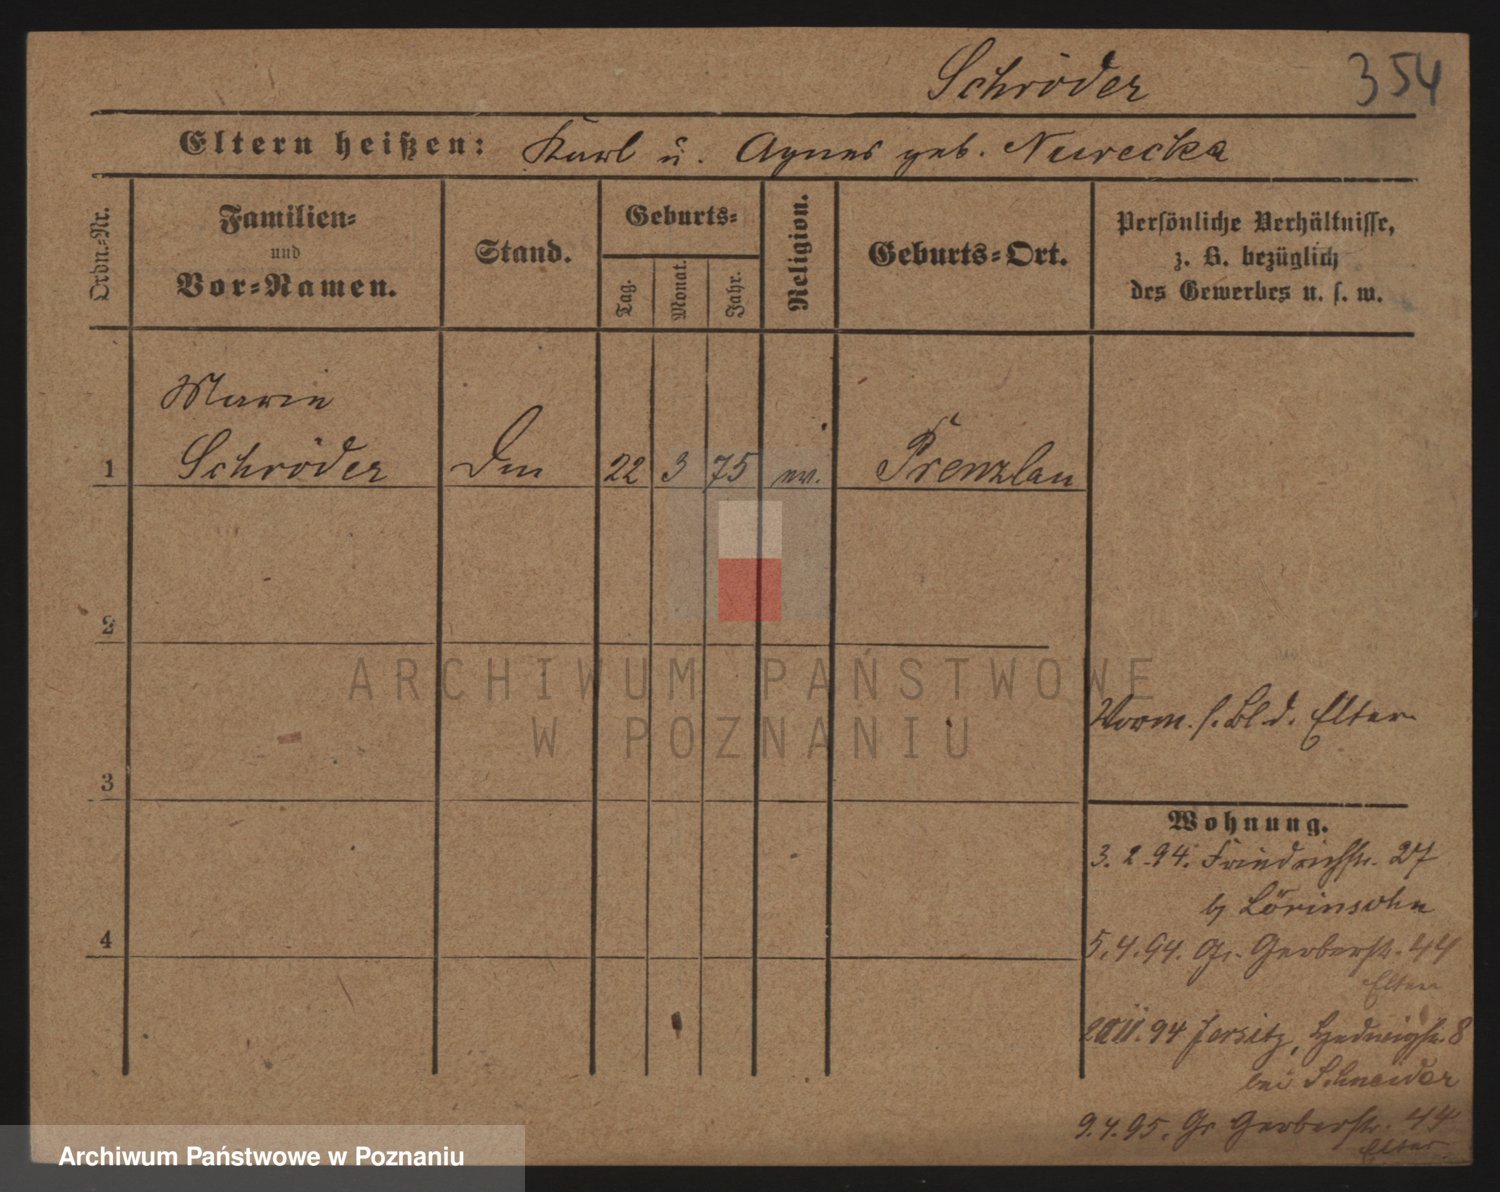 Schröder
354
Eltern heißen: Karl u. Agnes geb. Nurecka
Ordn.-Nr.
Familien-
und
Vor-Namen.
Stand.
Geburts-
Tag.
Monat.
Jahr.
Religion.
Geburts-Ort.
Persönliche Verhältnisse,
z. B. bezüglich
des Gewerbes u. s. w.
Marie
1 Schröder 22 3 75 ev. Prenzlau
2
3
4
Vorm. s. Bl. d. Elter
Wohnung.
3. 2. 94. Friedrichstr. 27
b/ Lörinsohn
5. 4. 94. Gr. Gerberstr. 44
Eltern
94 Jersitz, Hedwigstr. 8
bei Schneider
9. 4. 95. Gr Gerberstr. 44
Elter
ARCHIWUM PAŃSTWOWE
W POZNANIU
Archiwum Państwowe w Poznaniu